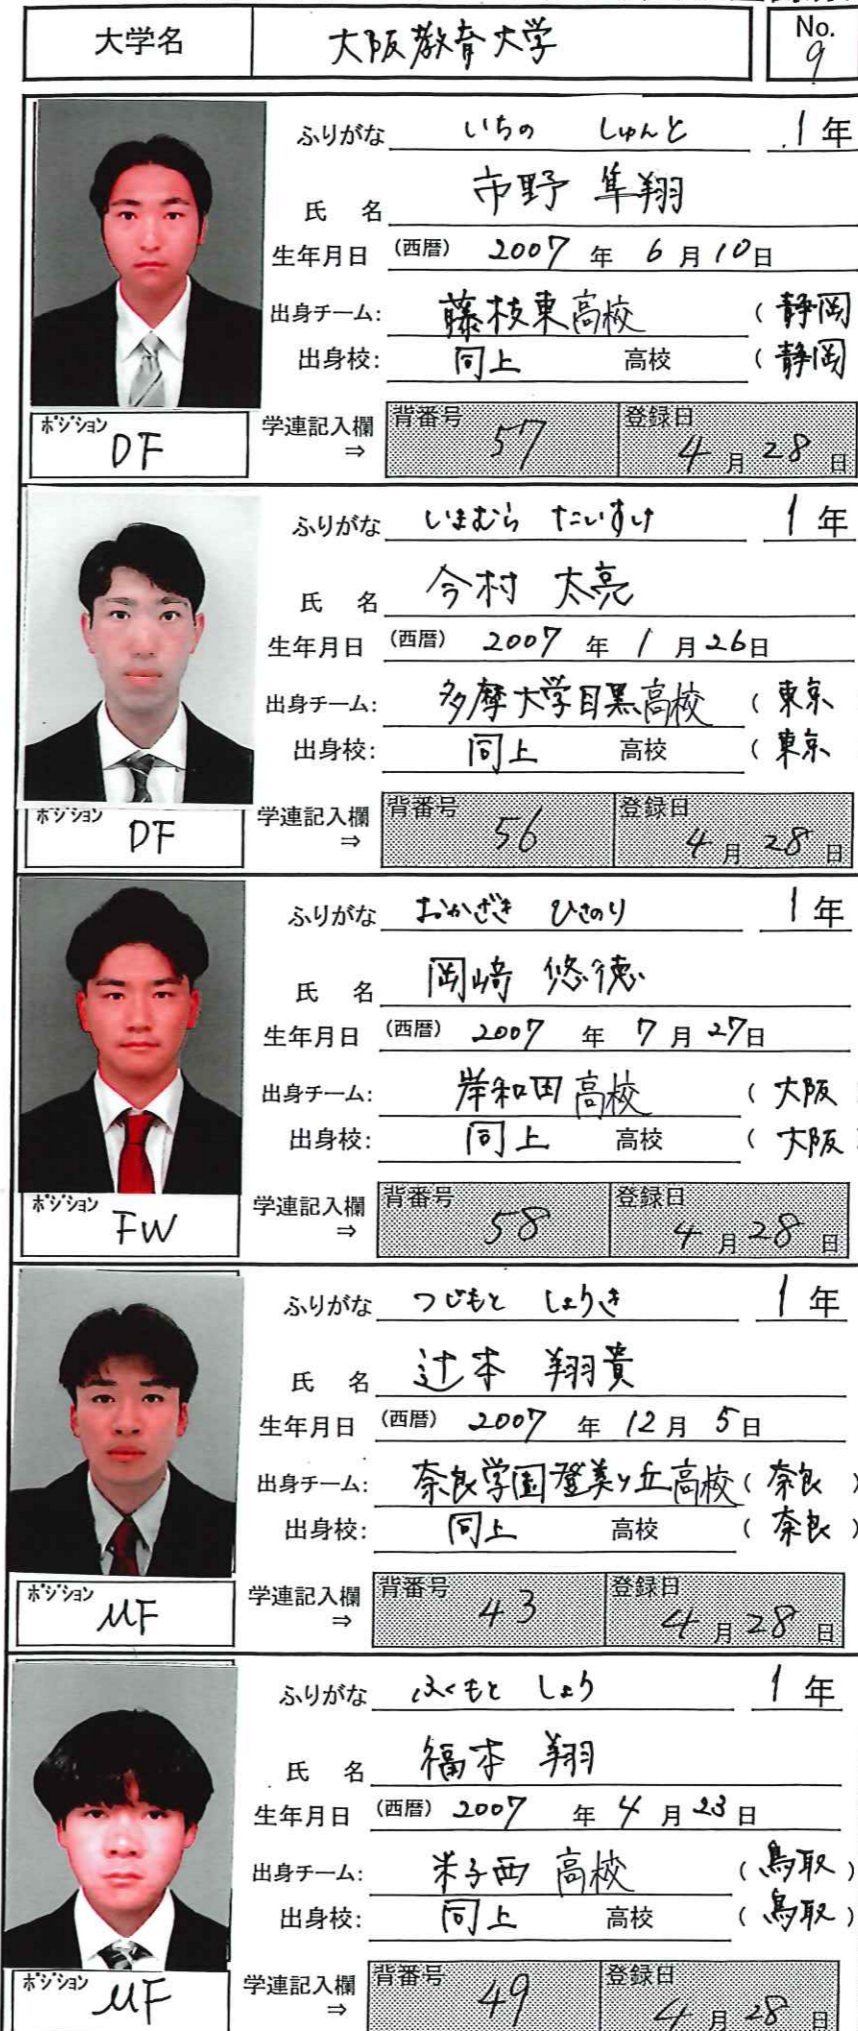 大学名 大阪教育大学 No. 9
ふりがな いちの しゅんと 1年
氏 名 市野 隼翔
生年月日 (西暦) 2007 年 6 月 10 日
出身チーム: 藤枝東高校 (静岡
出身校: 同上 高校 (静岡
ポジション DF 学連記入欄 ⇒ 背番号 57 登録日 4 月 28 日
ふりがな いまむら たいすけ 1年
氏 名 今村 太亮
生年月日 (西暦) 2007 年 1 月 26 日
出身チーム: 多摩大学目黒高校 (東京
出身校: 同上 高校 (東京
ポジション DF 学連記入欄 ⇒ 背番号 56 登録日 4 月 28 日
ふりがな おかざき ひさのり 1年
氏 名 岡﨑 悠徳
生年月日 (西暦) 2007 年 7 月 27 日
出身チーム: 岸和田高校 (大阪
出身校: 同上 高校 (大阪
ポジション FW 学連記入欄 ⇒ 背番号 58 登録日 4 月 28 日
ふりがな つじもと しょうき 1年
氏 名 辻本 翔貴
生年月日 (西暦) 2007 年 12 月 5 日
出身チーム: 奈良学園登美ヶ丘高校 (奈良)
出身校: 同上 高校 (奈良)
ポジション MF 学連記入欄 ⇒ 背番号 43 登録日 4 月 28 日
ふりがな ふくもと しょう 1年
氏 名 福本 翔
生年月日 (西暦) 2007 年 4 月 23 日
出身チーム: 米子西 高校 (鳥取)
出身校: 同上 高校 (鳥取)
ポジション MF 学連記入欄 ⇒ 背番号 49 登録日 4 月 28 日